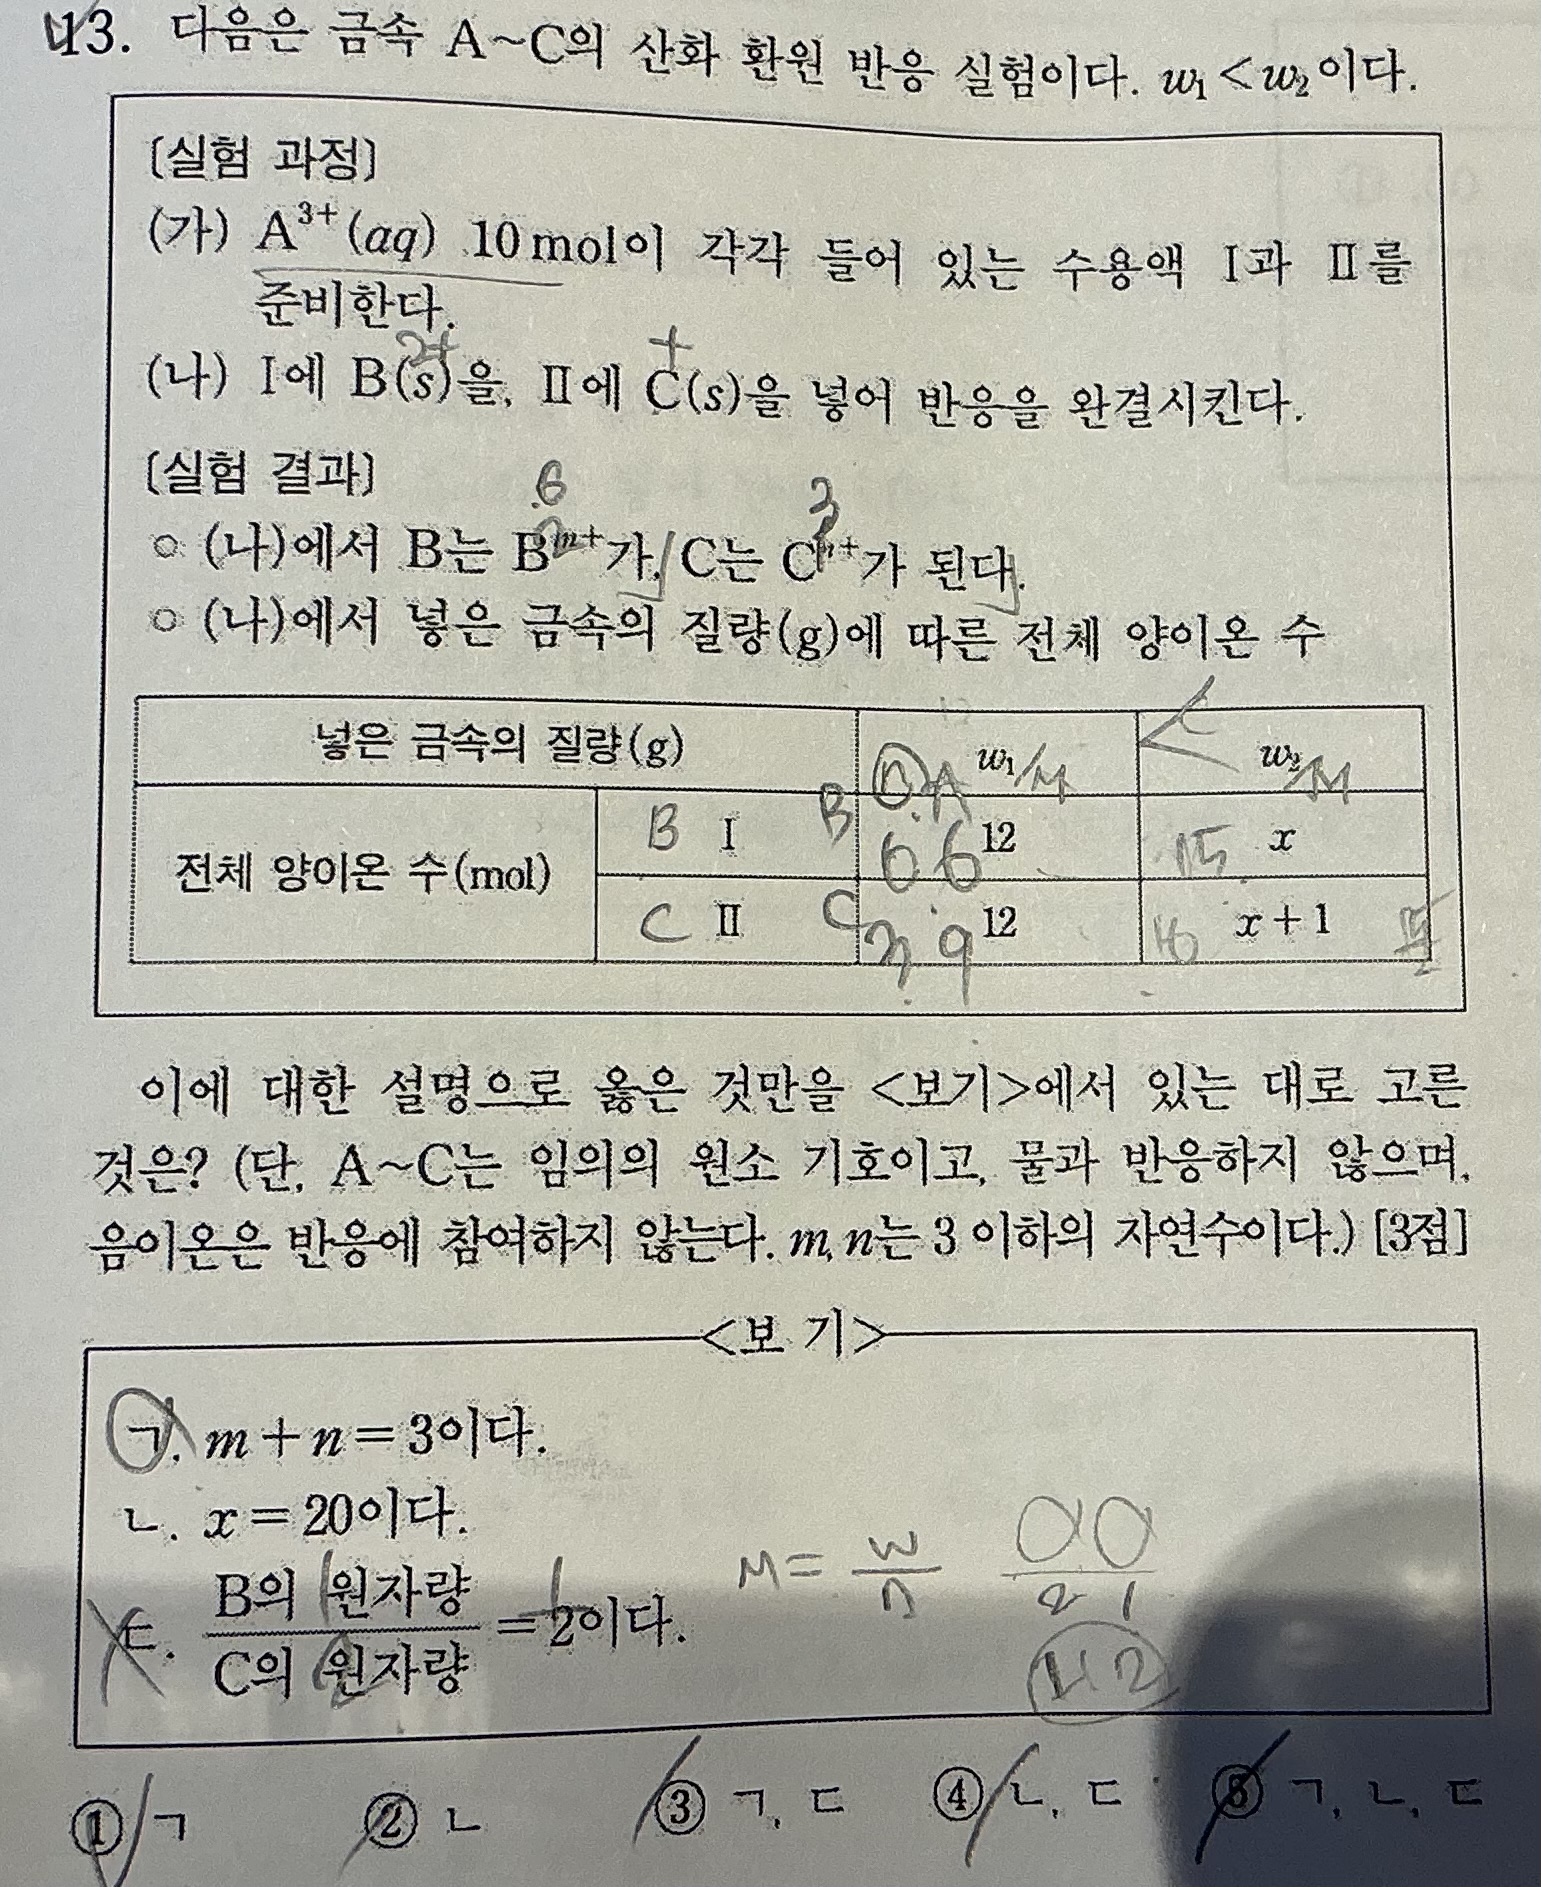 13. 다음은 금속 A~C의 산화 환원 반응 실험이다. w₁ < w₂이다.
[실험 과정]
(가) A³⁺(aq) 10 mol이 각각 들어 있는 수용액 Ⅰ과 Ⅱ를
준비한다.
2+ +
(나) Ⅰ에 B(s)을, Ⅱ에 C(s)을 넣어 반응을 완결시킨다.
[실험 결과]
6 3
○ (나)에서 B는 Bᵐ⁺가, C는 Cⁿ⁺가 된다.
○ (나)에서 넣은 금속의 질량(g)에 따른 전체 양이온 수
넣은 금속의 질량(g) w₁/M < w₂/M
전체 양이온 수(mol) B Ⅰ B 6 6 12 15 x
C Ⅱ C 3 9 12 16 x+1
이에 대한 설명으로 옳은 것만을 <보기>에서 있는 대로 고른
것은? (단, A~C는 임의의 원소 기호이고, 물과 반응하지 않으며,
음이온은 반응에 참여하지 않는다. m, n는 3 이하의 자연수이다.) [3점]
<보 기>
ㄱ. m+n=3이다.
ㄴ. x=20이다.
ㄷ. B의 원자량/C의 원자량 = 2이다.
M = w/n
2 1
1:2
① ㄱ ② ㄴ ③ ㄱ, ㄷ ④ ㄴ, ㄷ ⑤ ㄱ, ㄴ, ㄷ